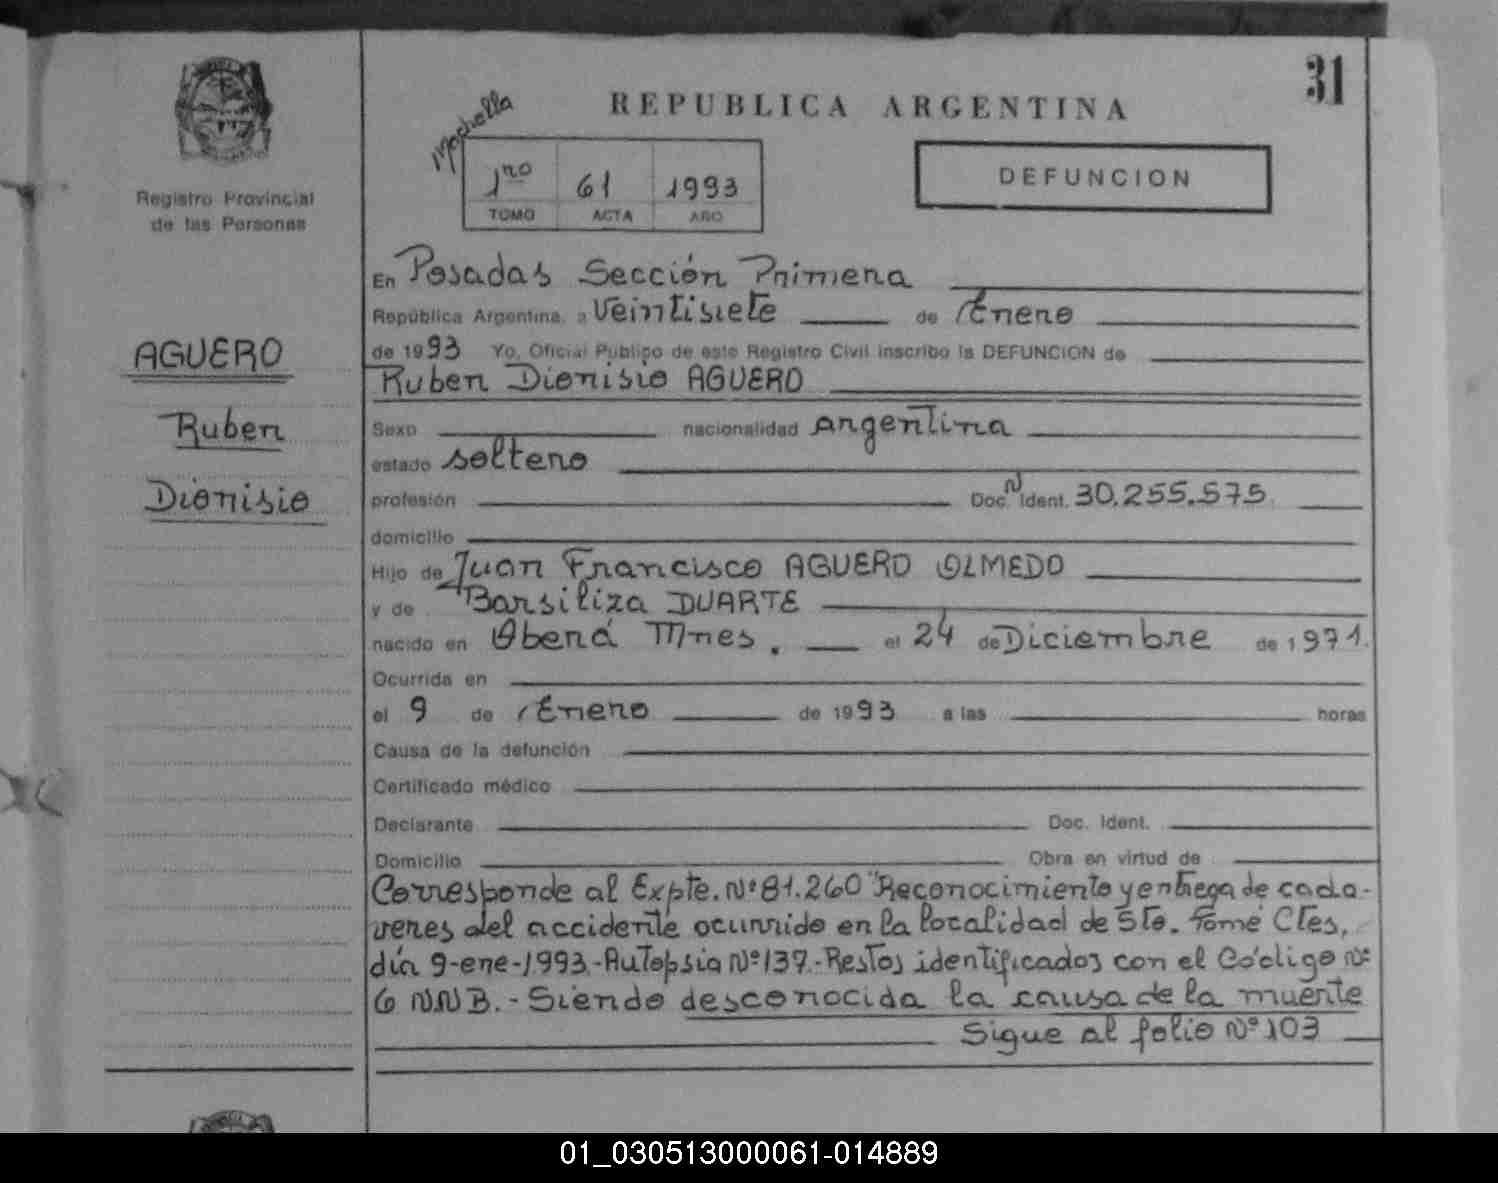 31
REPUBLICA ARGENTINA
1ro 61 1993
TOMO ACTA AÑO
DEFUNCION
Registro Provincial
de las Personas
AGUERO
Ruben
Dionisio
En Posadas Sección Primera
República Argentina, a Veintisiete de Enero
de 1993 Yo, Oficial Público de este Registro Civil inscribo la DEFUNCION de
Ruben Dionisio AGUERO
Sexo nacionalidad Argentina
estado soltero
profesión Doc. N Ident. 30.255.575
domicilio
Hijo de Juan Francisco AGUERO OLMEDO
y de Barsiliza DUARTE
nacido en Oberá Mnes. el 24 de Diciembre de 1971.
Ocurrida en
el 9 de Enero de 1993 a las horas
Causa de la defunción
Certificado médico
Declarante Doc. Ident.
Domicilio Obra en virtud de
Corresponde al Expte. Nº 81.260 "Reconocimiento y entrega de cada-
veres del accidente ocurrido en la localidad de Sto. Tomé Ctes,
día 9-ene-1993.-Autopsia Nº 137.-Restos identificados con el Código Nº
6 NNB.- Siendo desconocida la causa de la muerte
Sigue al folio Nº 103
01_030513000061-014889